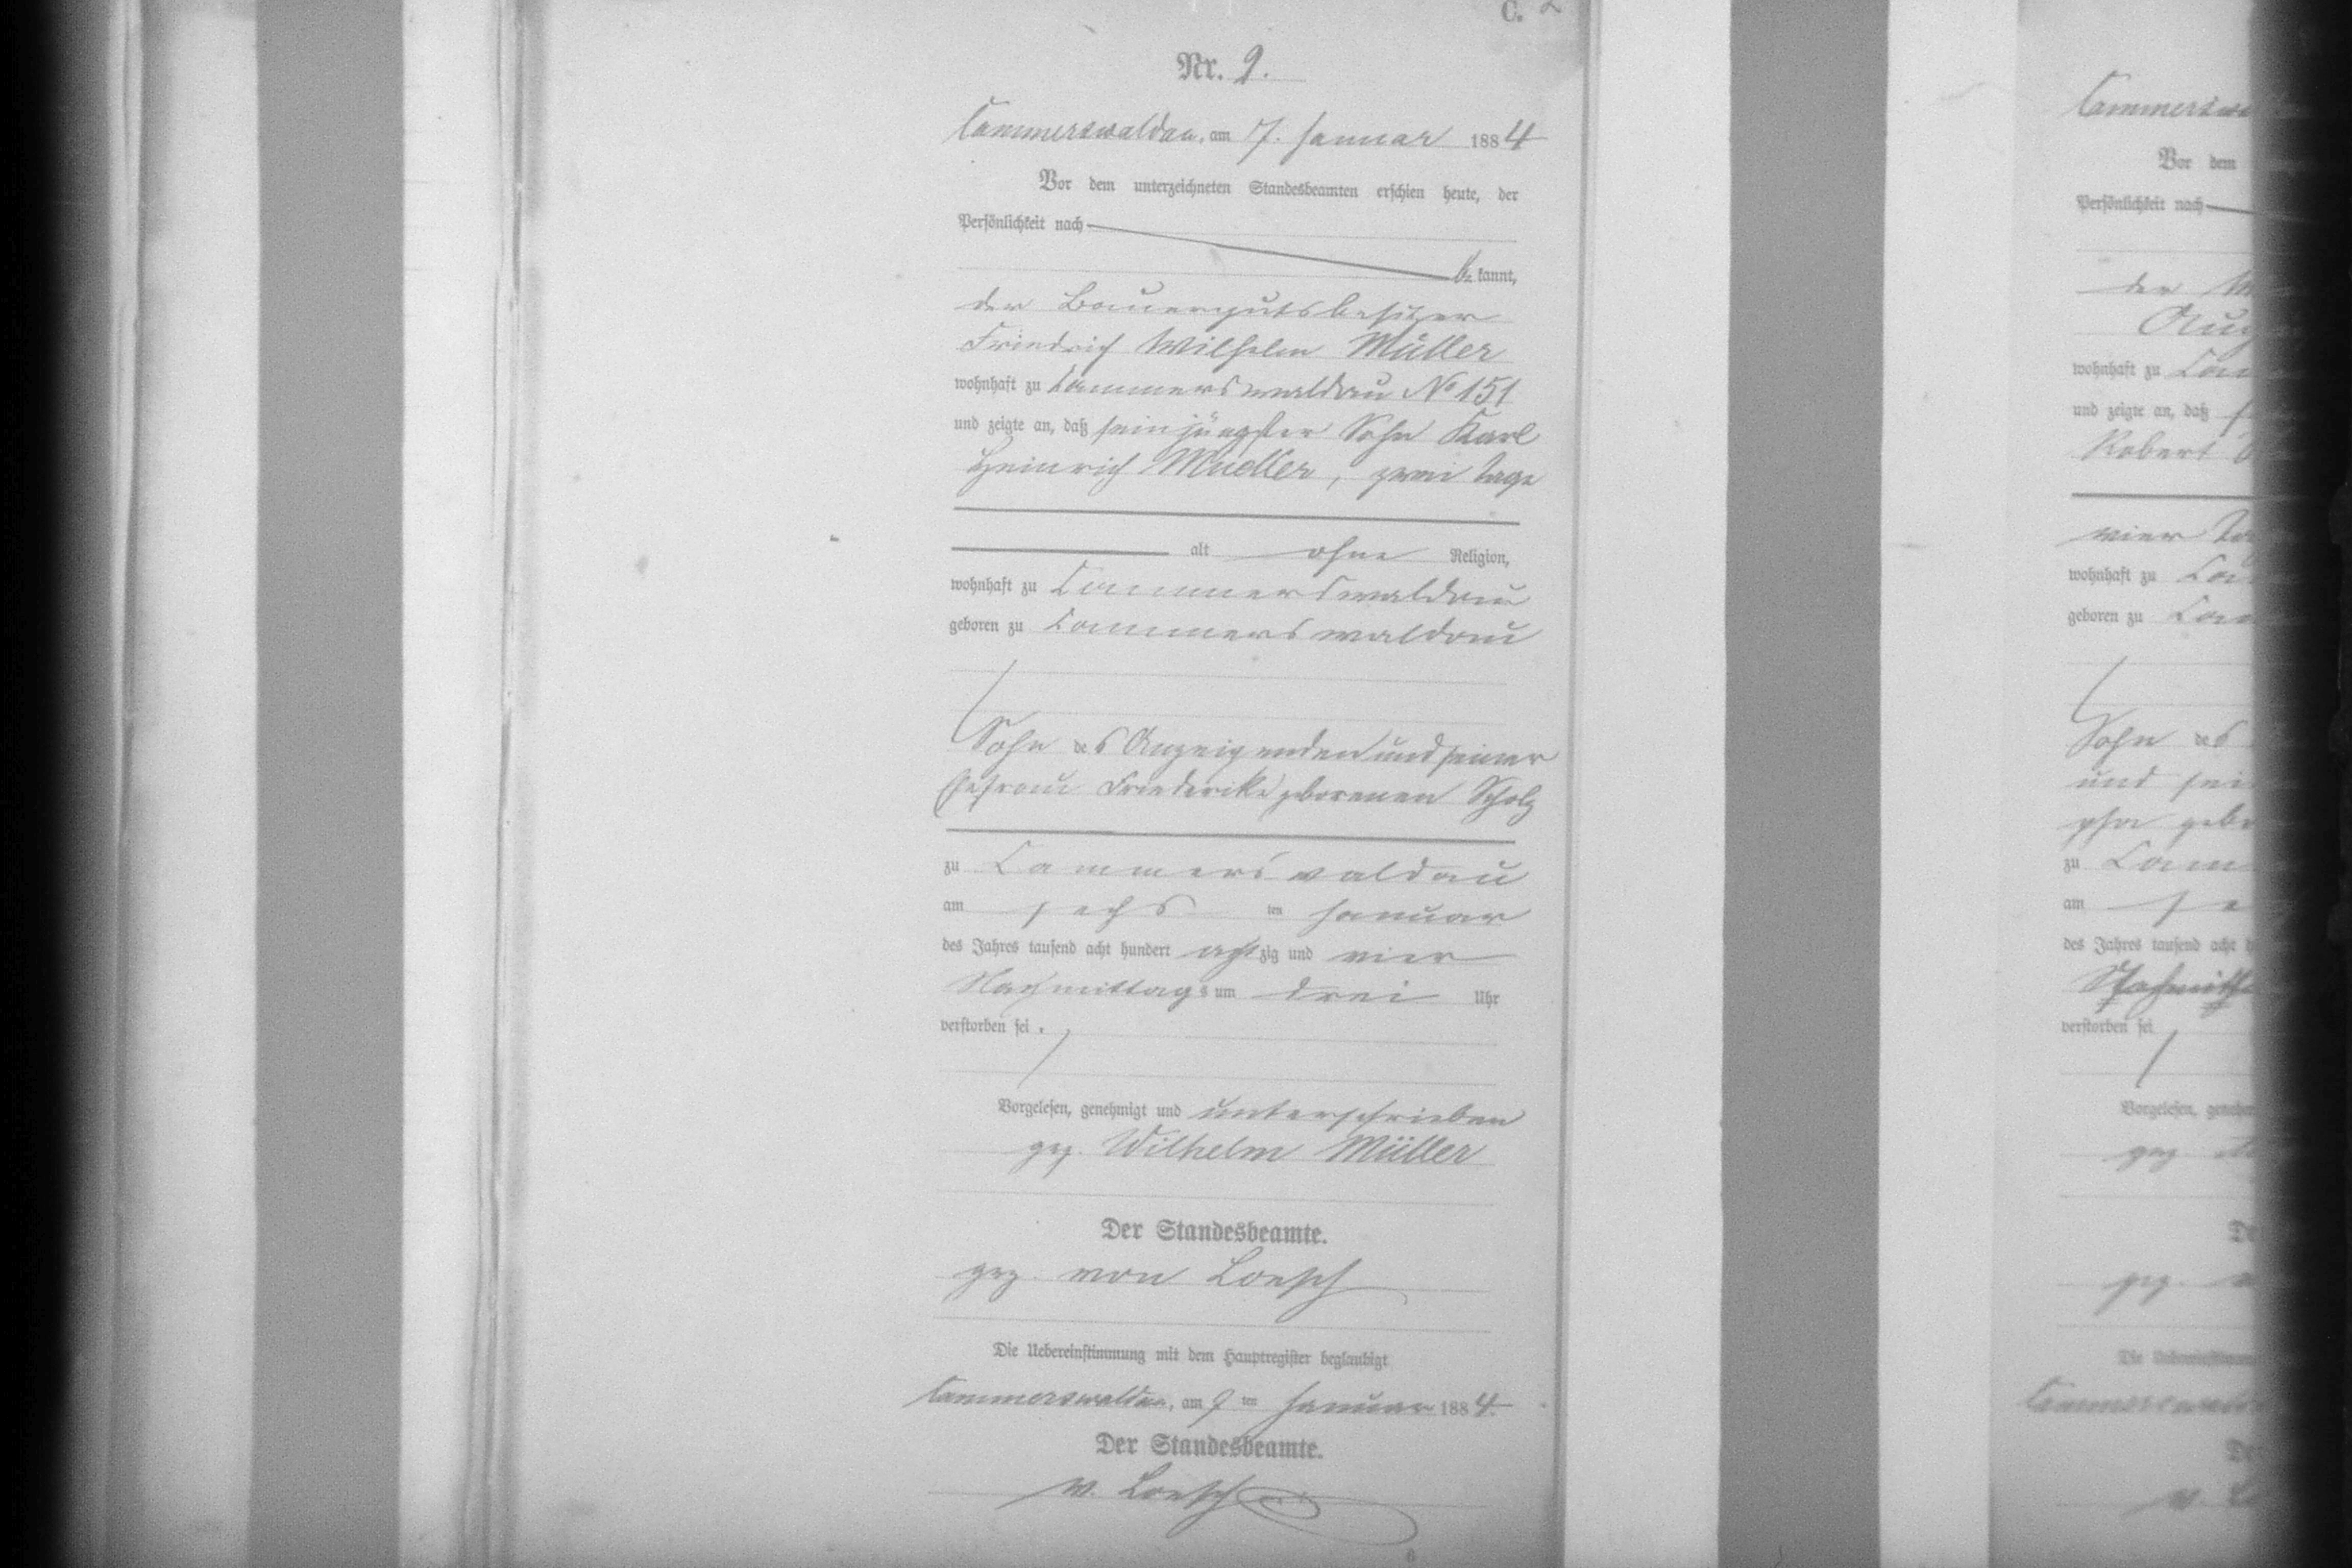 C. 2
Nr. 2.
Cammerswaldau, am 7. Januar 1884
Vor dem unterzeichneten Standesbeamten erschien heute, der
Persönlichkeit nach
bekannt,
der Bauergutsbesitzer
Friedrich Wilhelm Müller
wohnhaft zu Cammerswaldau No 151
und zeigte an, daß sein jüngster Sohn Karl
Heinrich Mueller, zwei Tage
alt ohne Religion,
wohnhaft zu Cammerswaldau
geboren zu Cammerswaldau
Sohn des Anzeigenden und seiner
Ehefrau Friederike geborenen Scholz
zu Cammerswaldau
am sechsten Januar
des Jahres tausend acht hundert achtzig und vier
Nachmittags um drei Uhr
verstorben sei.
Vorgelesen, genehmigt und unterschrieben
gez. Wilhelm Müller
Der Standesbeamte.
gez. von Loesch
Die Uebereinstimmung mit dem Hauptregister beglaubigt
Cammerswaldau, am 9ten Januar 1884.
Der Standesbeamte.
v. Loesch
Vor dem
Persönlichkeit nach
der
wohnhaft zu
und zeigte an, daß
Robert
vier
wohnhaft zu
geboren zu
Sohn des
und
zu
am
des Jahres tausend acht
verstorben sei
Vorgelesen,
gez
gez.
Die